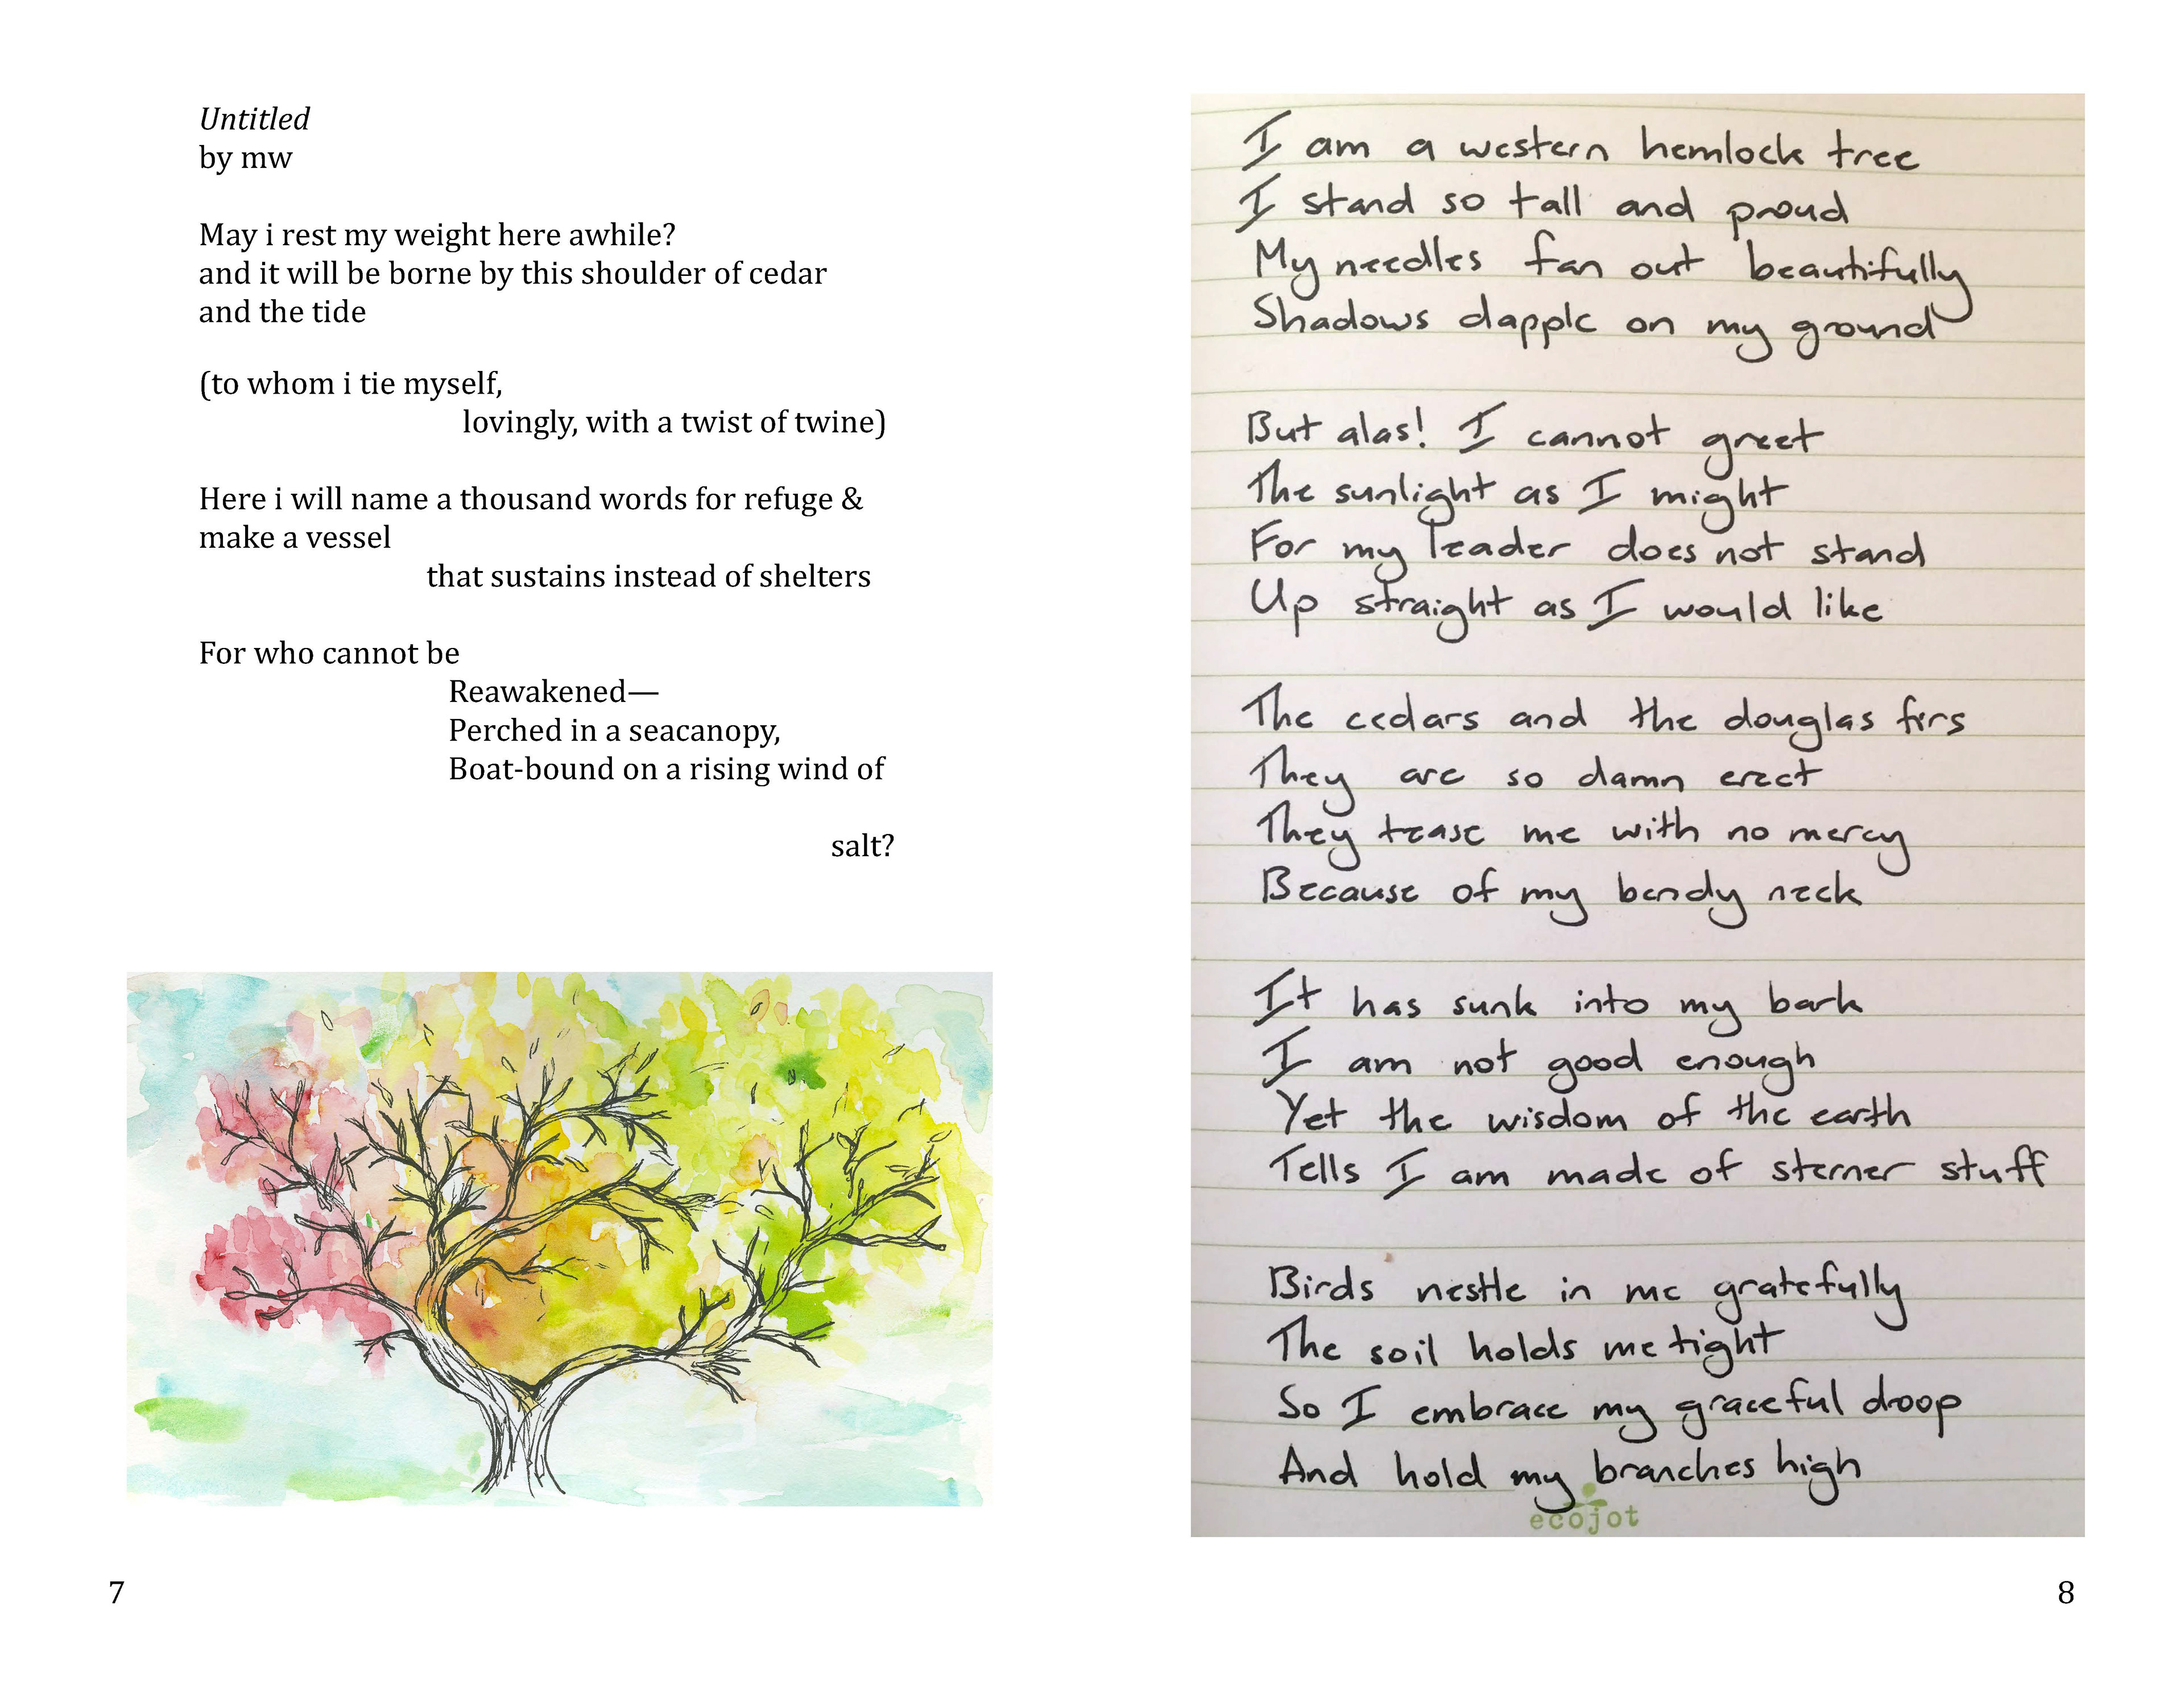 Untitled
by mw
May i rest my weight here awhile?
and it will be borne by this shoulder of cedar
and the tide
(to whom i tie myself,
lovingly, with a twist of twine)
Here i will name a thousand words for refuge &
make a vessel
that sustains instead of shelters
For who cannot be
Reawakened—
Perched in a seacanopy,
Boat-bound on a rising wind of
salt?
7
I am a western hemlock tree
I stand so tall and proud
My needles fan out beautifully
Shadows dapple on my ground
But alas! I cannot greet
The sunlight as I might
For my leader does not stand
Up straight as I would like
The cedars and the douglas firs
They are so damn erect
They tease me with no mercy
Because of my bendy neck
It has sunk into my bark
I am not good enough
Yet the wisdom of the earth
Tells I am made of sterner stuff
Birds nestle in me gratefully
The soil holds me tight
So I embrace my graceful droop
And hold my branches high
ecojot
8